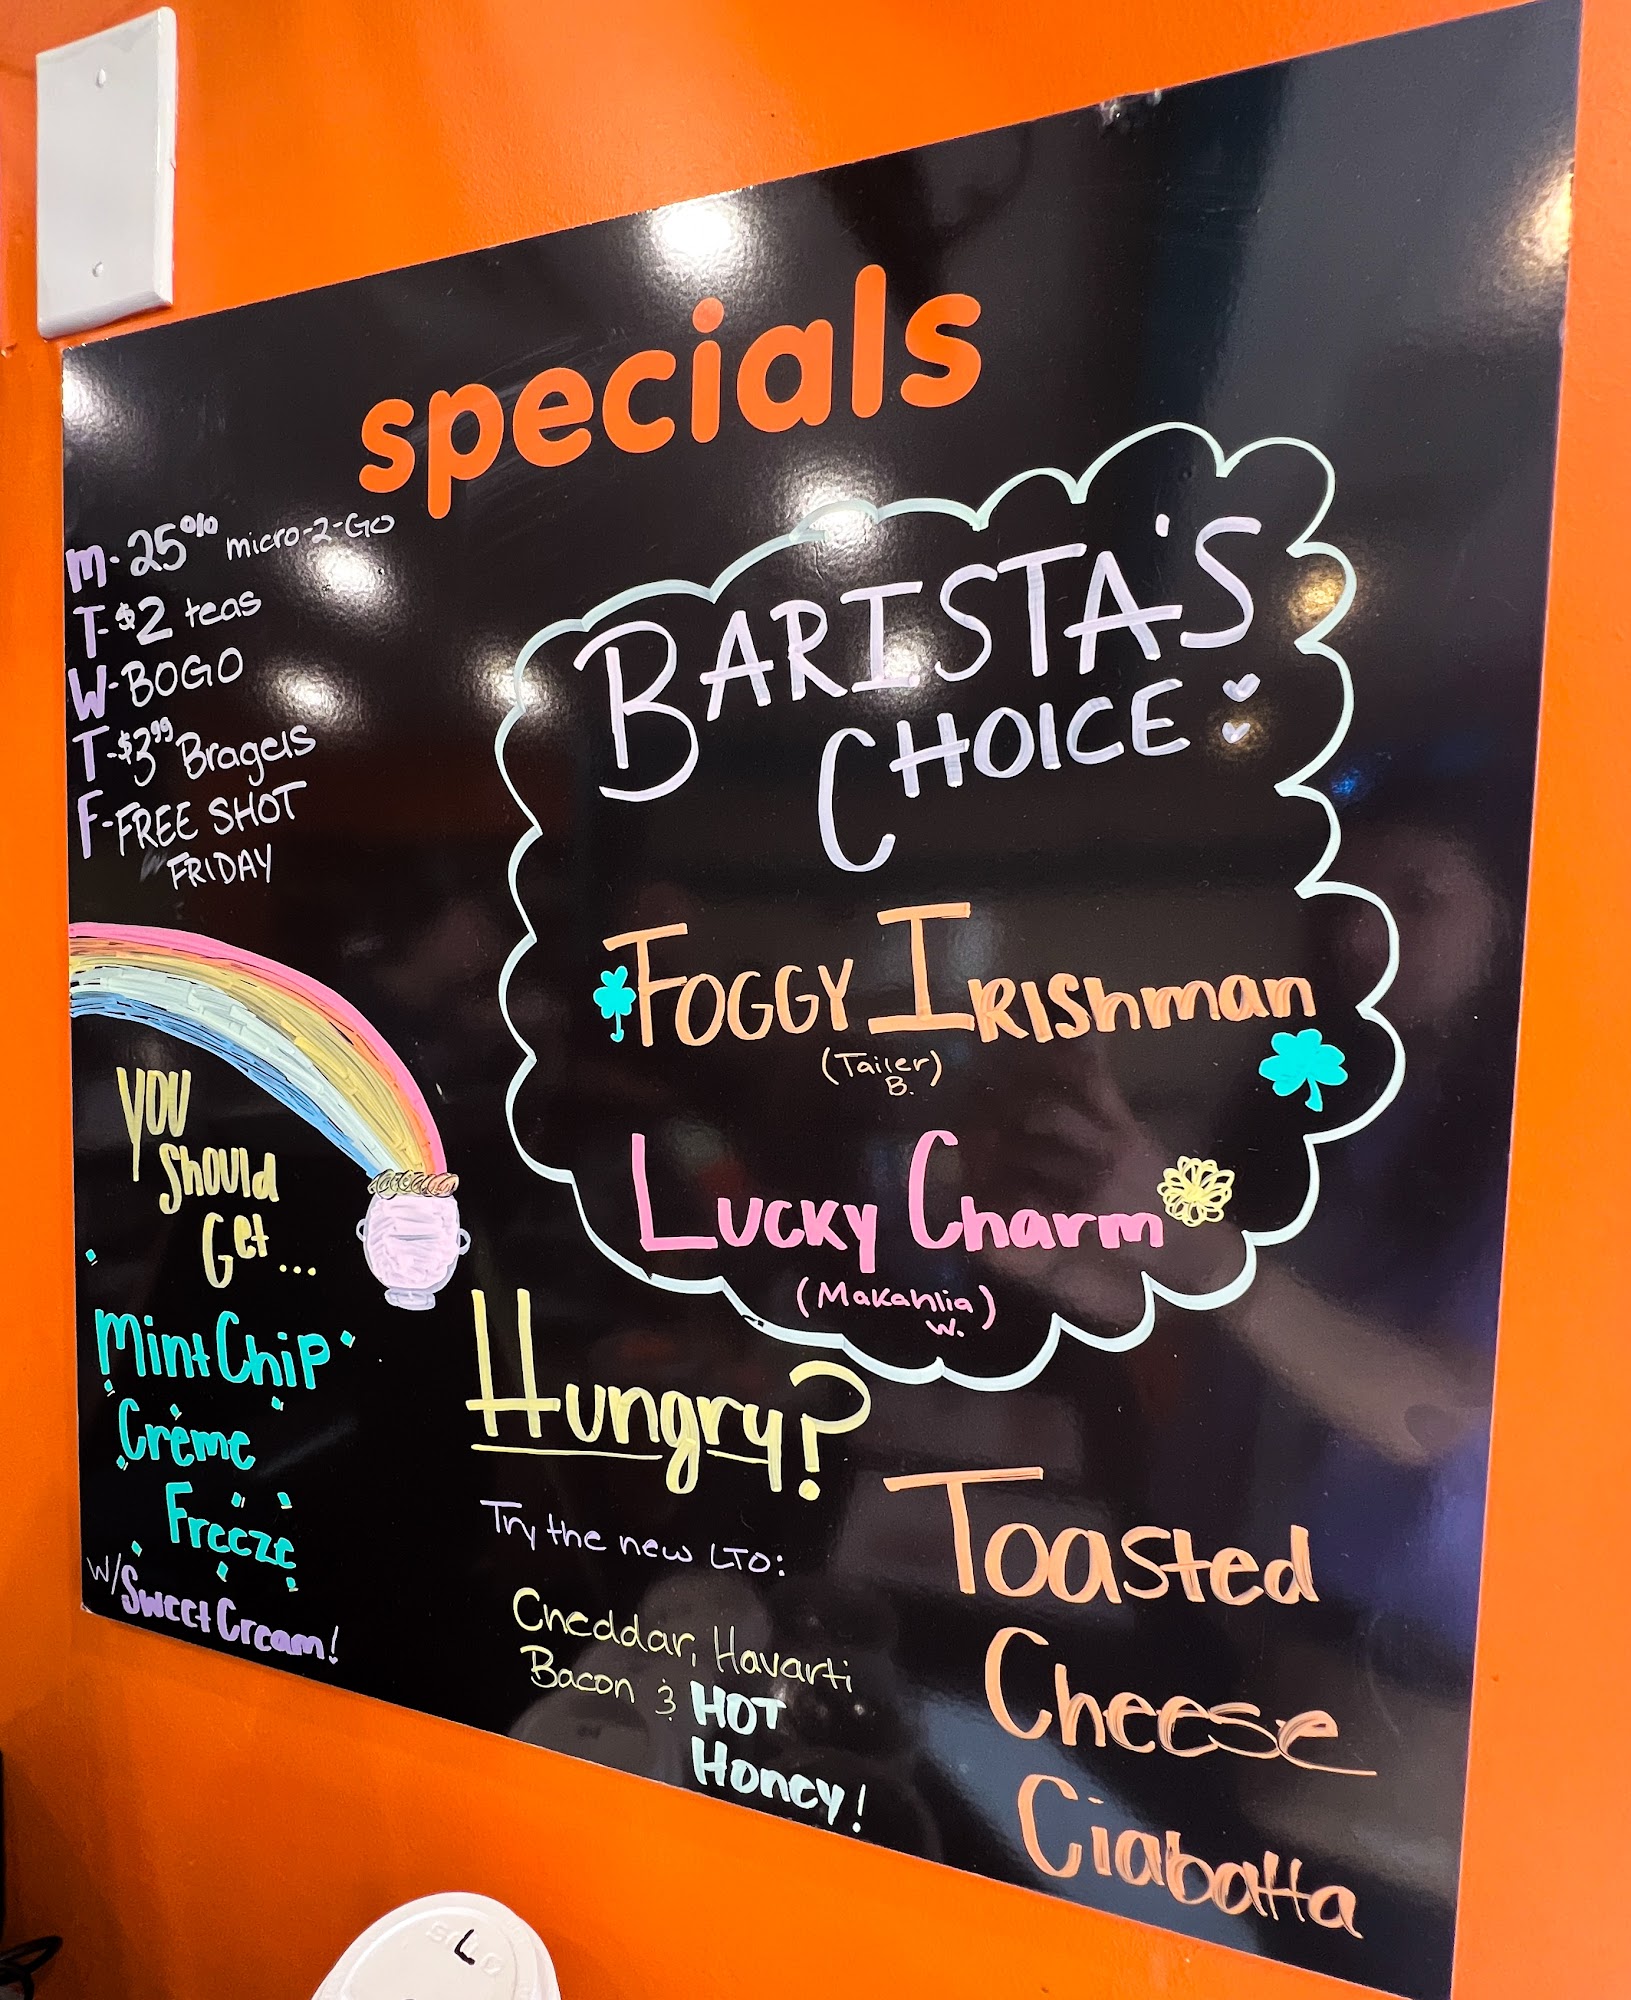 specials
M-25% micro-2-Go
T-$2 teas
W-BOGO
T-$3.99 Bragels
F-FREE SHOT
FRIDAY
BARISTA'S
CHOICE
FOGGY IRISHman
(Tailer)
B.
LUCKY Charm
(Makahlia)
W.
YOU
Should
Get...
Mint Chip
Crème
Freeze
w/Sweet Cream!
Hungry?
Try the new LTO:
Cheddar, Havarti
Bacon & HOT
Honey!
Toasted
Cheese
Ciabatta
L